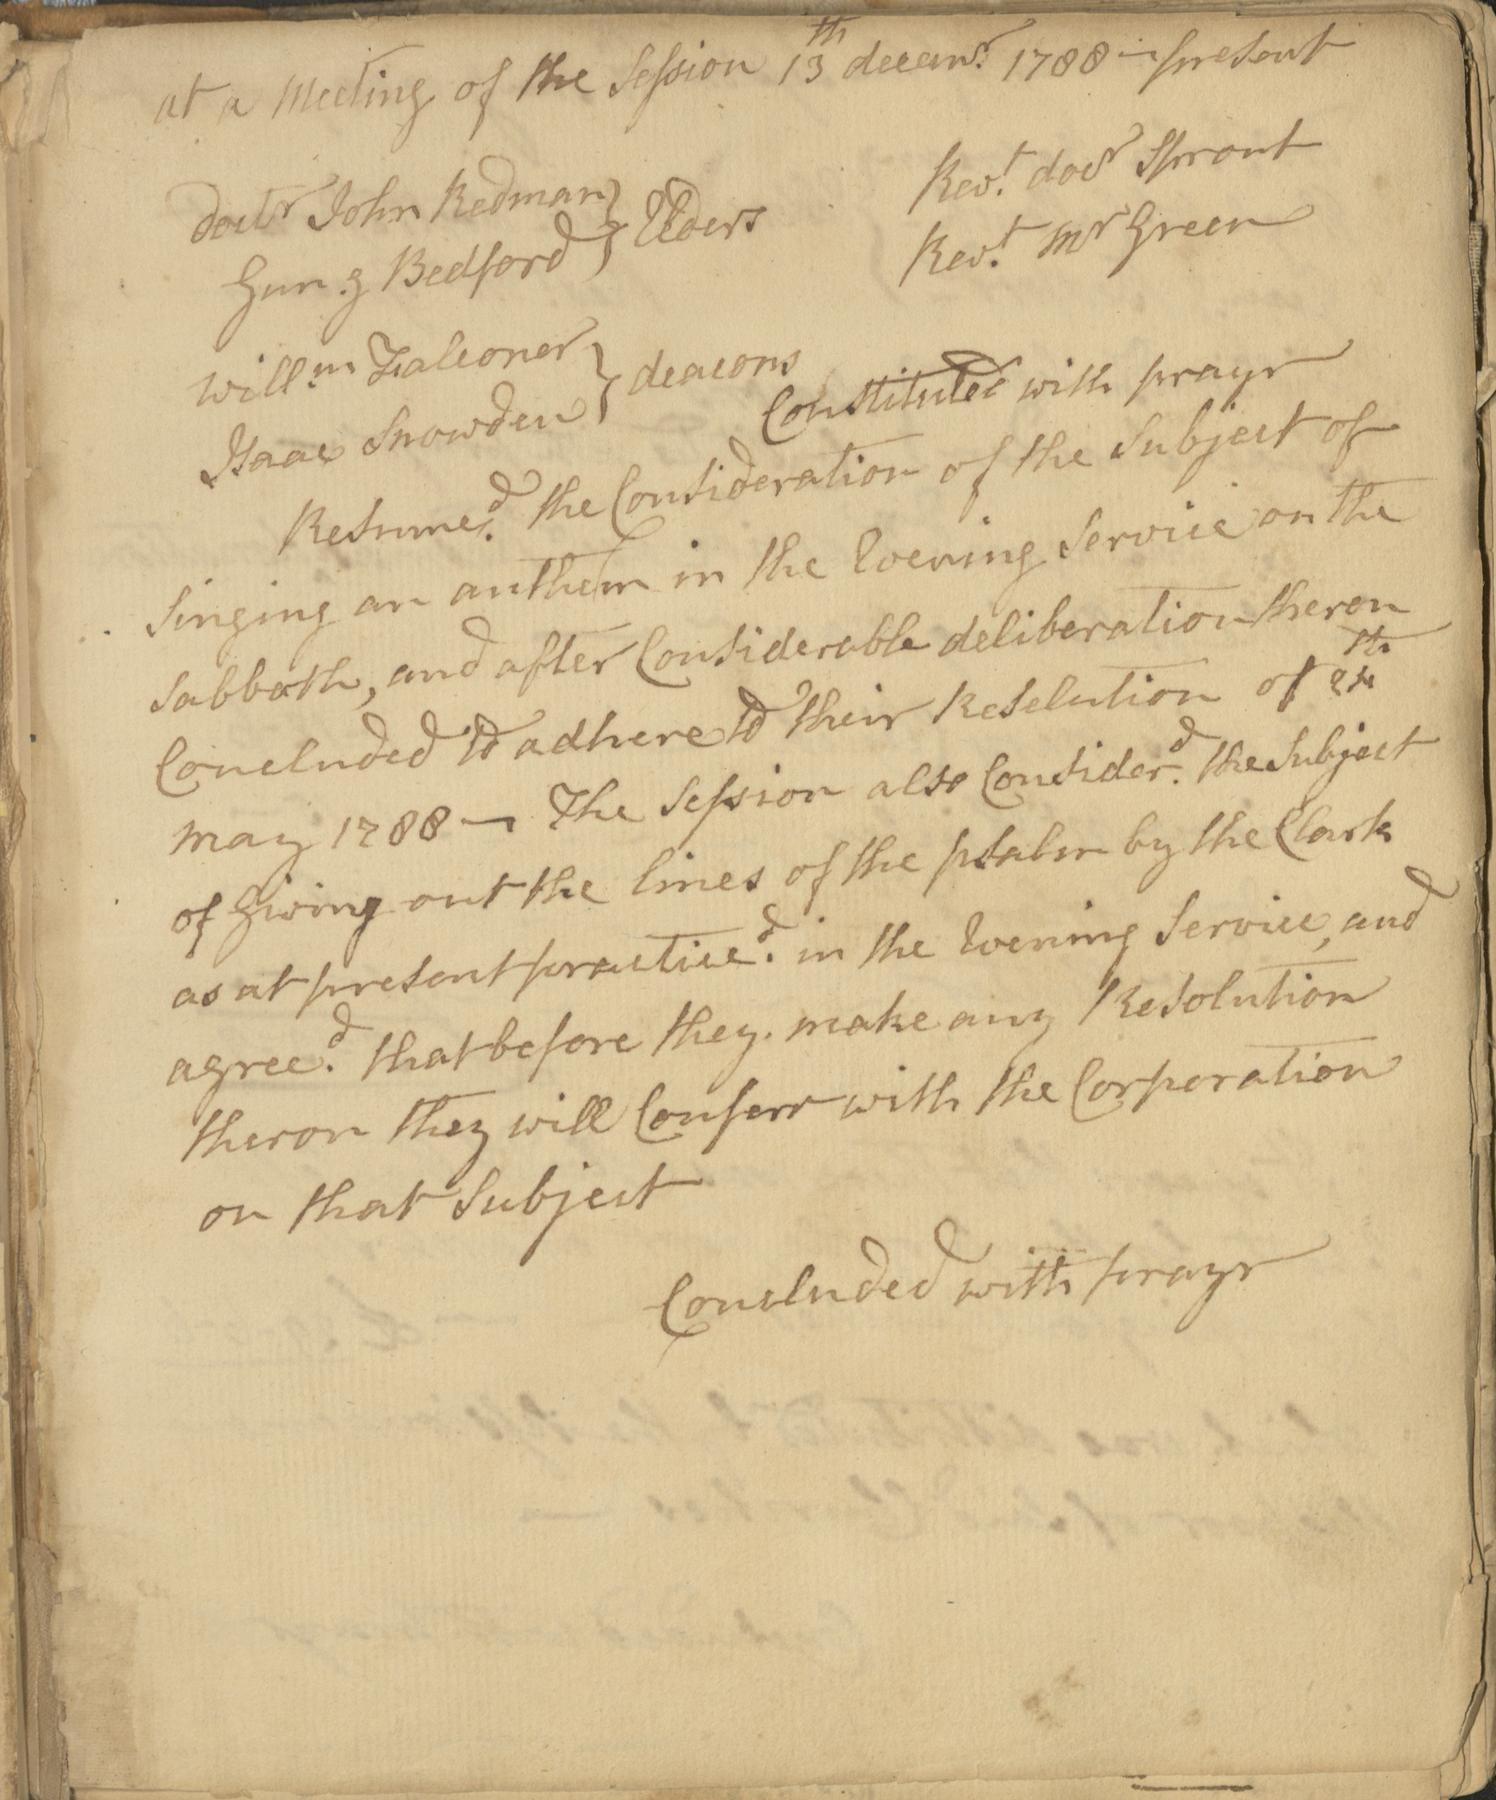 at a Meeting of the Session 13th decemr. 1788 — present
Revt. docr Sprout
Revt. Mr Green
doctr John Redman } Elders
Gung Bedford }
Willm. Falconer } deacons
Isaac Snowden }
Constituted with prayr
Resumed. the Consideration of the Subject of
Singing an anthem in the Evening Service on the
Sabboth, and after Considerable deliberation theron
Concluded to adhere to their Resolution of th
may 1788 — The Session also Considerd. the Subject
of Giving out the lines of the psalm by the Clark
as at present practiced. in the Evening Service, and
agreed. that before they make any Resolution
theron they will Conferr with the Corporation
on that Subject
Concluded with prayr